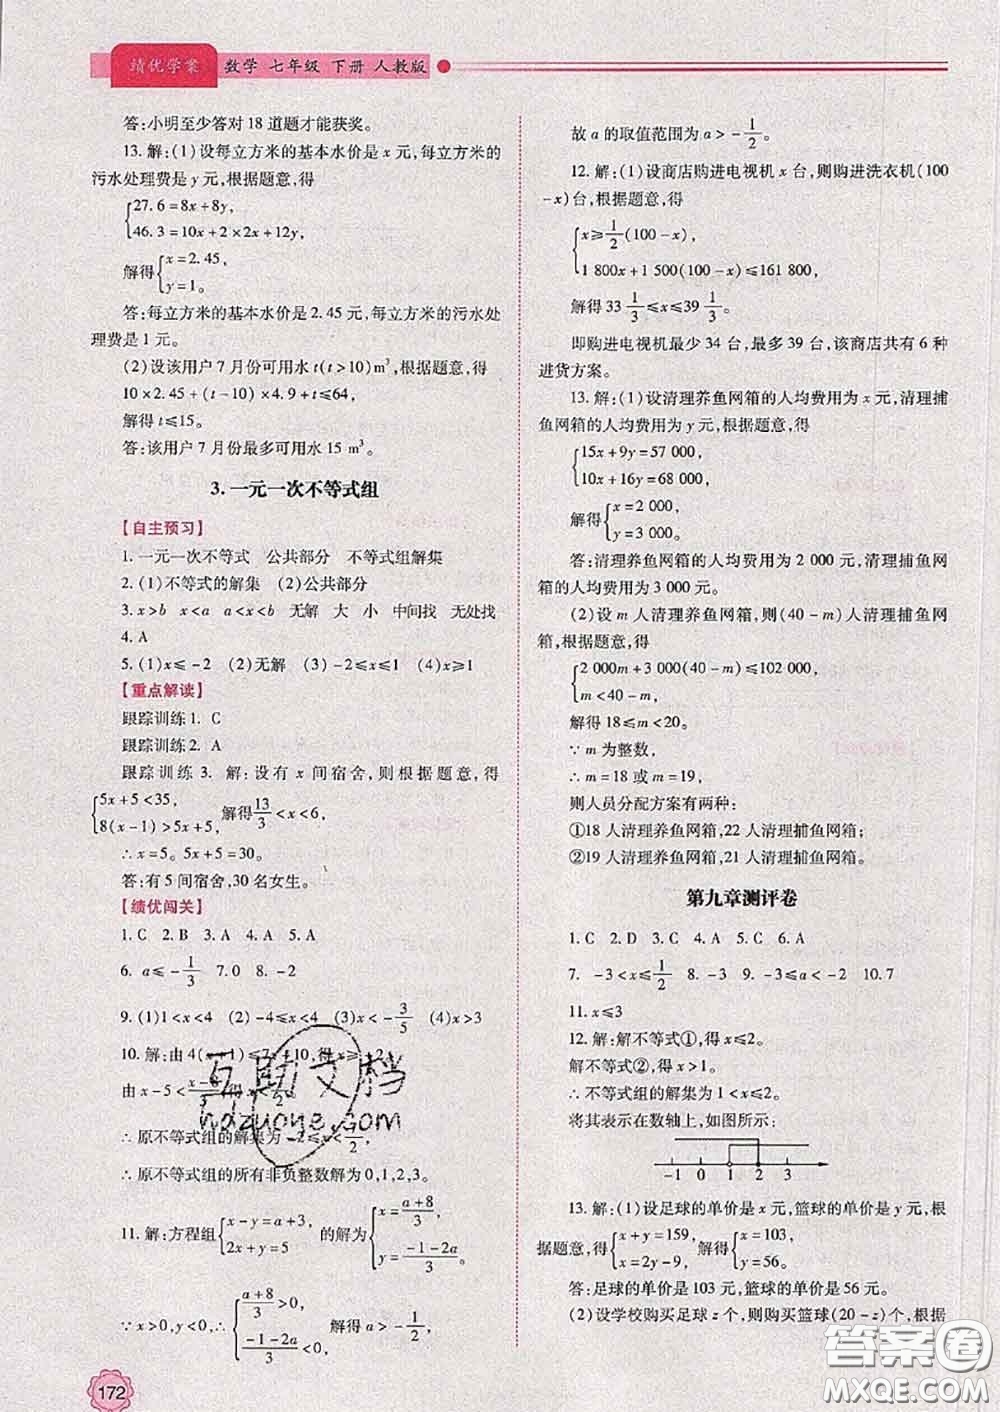 绩优学案 数学 七年级 下册 人教版
答:小明至少答对18道题才能获奖。
13.解:(1)设每立方米的基本水价是x元,每立方米的
污水处理费是y元,根据题意,得
{27.6=8x+8y,
46.3=10x+2×2x+12y,
解得{x=2.45,
y=1。
答:每立方米的基本水价是2.45元,每立方米的污水处
理费是1元。
(2)设该用户7月份可用水t(t>10)m³,根据题意,得
10×2.45+(t-10)×4.9+t≤64,
解得t≤15。
答:该用户7月份最多可用水15 m³。
3.一元一次不等式组
【自主预习】
1.一元一次不等式 公共部分 不等式组解集
2.(1)不等式的解集 (2)公共部分
3.x>b x<a a<x<b 无解 大 小 中间找 无处找
4.A
5.(1)x≤-2 (2)无解 (3)-2≤x≤1 (4)x≥1
【重点解读】
跟踪训练1. C
跟踪训练2. A
跟踪训练3. 解:设有x间宿舍,则根据题意,得
{5x+5<35,
8(x-1)>5x+5, 解得13/3<x<6,
∴x=5。5x+5=30。
答:有5间宿舍,30名女生。
【绩优闯关】
1.C 2.B 3.A 4.A 5.A
6.a≤-1/3 7.0 8.-2
9.(1)1<x<4 (2)-4≤x<4 (3)x<-3/5 (4)x>3
10.解:由4(x+1)≤7x+10,得x≥-2。
由x-5<
∴原不等式组的解集为-2≤x<7/2,
∴原不等式组的所有非负整数解为0,1,2,3。
11.解:方程组{x-y=a+3,
2x+y=5 的解为{x=(a+8)/3,
y=(-1-2a)/3。
∵x>0,y<0,∴{(a+8)/3>0,
(-1-2a)/3<0, 解得a>-1/2,
172
故a的取值范围为a>-1/2。
12.解:(1)设商店购进电视机x台,则购进洗衣机(100
-x)台,根据题意,得
{x≥1/2(100-x),
1 800x+1 500(100-x)≤161 800,
解得33 1/3≤x≤39 1/3。
即购进电视机最少34台,最多39台,该商店共有6种
进货方案。
13.解:(1)设清理养鱼网箱的人均费用为x元,清理捕
鱼网箱的人均费用为y元,根据题意,得
{15x+9y=57 000,
10x+16y=68 000,
解得{x=2 000,
y=3 000。
答:清理养鱼网箱的人均费用为2 000元,清理捕鱼网
箱的人均费用为3 000元。
(2)设m人清理养鱼网箱,则(40-m)人清理捕鱼网
箱,根据题意,得
{2 000m+3 000(40-m)≤102 000,
m<40-m,
解得18≤m<20。
∵m为整数,
∴m=18或m=19,
则人员分配方案有两种:
①18人清理养鱼网箱,22人清理捕鱼网箱;
②19人清理养鱼网箱,21人清理捕鱼网箱。
第九章测评卷
1.C 2.D 3.C 4.A 5.C 6.A
7.-3<x≤1/2 8.-3 9.-3≤a<-2 10.7
11.x≤3
12.解:解不等式①,得x≤2。
解不等式②,得x>1。
∴不等式组的解集为1<x≤2。
将其表示在数轴上,如图所示:
-1 0 1 2 3
13.解:(1)设足球的单价是x元,篮球的单价是y元,根
据题意,得{x+y=159,
x=2y-9, 解得{x=103,
y=56。
答:足球的单价是103元,篮球的单价是56元。
(2)设学校购买足球z个,则购买篮球(20-z)个,根据
互助文档
hdzuoye.com
答案圈
MXQE.COM